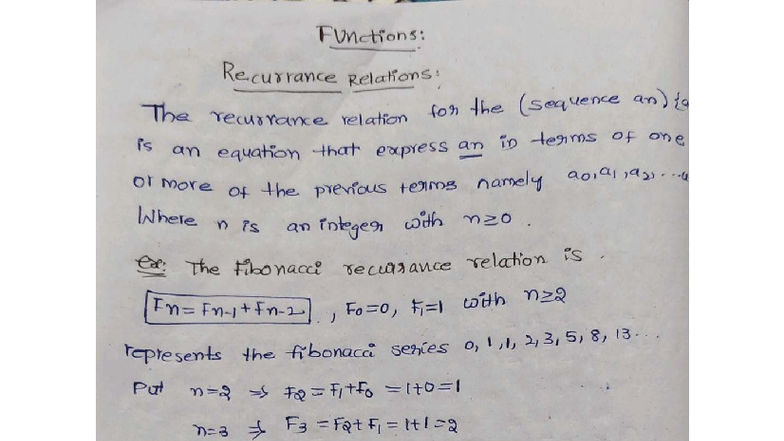 Functions:
Recurrance Relations:
The recurrance relation for the (sequence an)
is an equation that express an in terms of one
or more of the previous terms namely a0, a1, a2, ...
Where n is an integer with n≥0.
Ex: The Fibonacci recurrance relation is.
Fn = Fn-1 + Fn-2, F0=0, F1=1 with n≥2
represents the fibonacci series 0, 1, 1, 2, 3, 5, 8, 13...
Put n=2 ⇒ F2 = F1+F0 = 1+0=1
n=3 ⇒ F3 = F2+F1 = 1+1=2